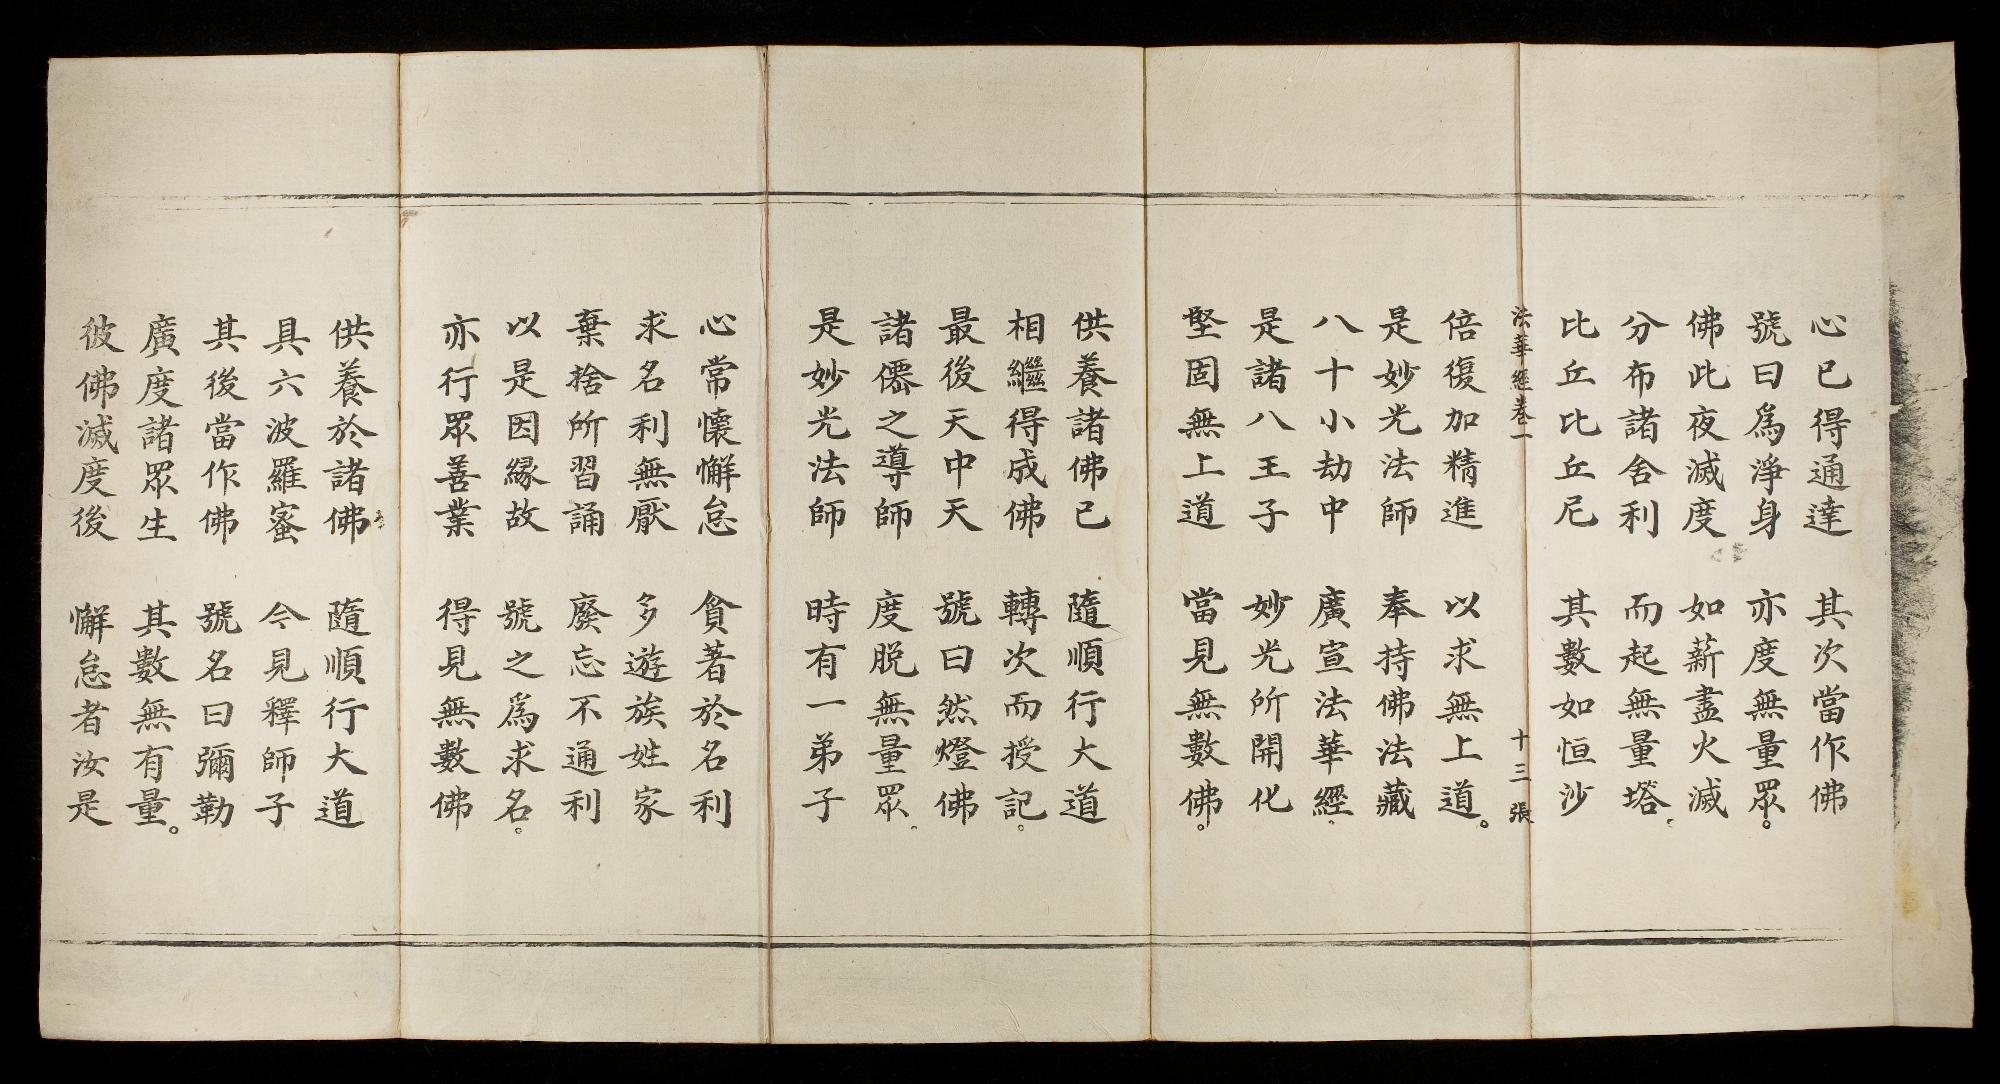 心已得通達　其次當作佛
號曰爲淨身　亦度無量眾。
佛此夜滅度　如薪盡火滅
分布諸舍利　而起無量塔。
比丘比丘尼　其數如恒沙
法華經卷一　十三張
倍復加精進　以求無上道。
是妙光法師　奉持佛法藏
八十小劫中　廣宣法華經。
是諸八王子　妙光所開化
堅固無上道　當見無數佛。
供養諸佛已　隨順行大道
相繼得成佛　轉次而授記。
最後天中天　號曰然燈佛
諸僊之導師　度脫無量眾。
是妙光法師　時有一弟子
心常懷懈怠　貪著於名利
求名利無厭　多遊族姓家
棄捨所習誦　廢忘不通利
以是因緣故　號之爲求名。
亦行眾善業　得見無數佛
供養於諸佛　隨順行大道
具六波羅蜜　今見釋師子
其後當作佛　號名曰彌勒
廣度諸眾生　其數無有量。
彼佛滅度後　懈怠者汝是